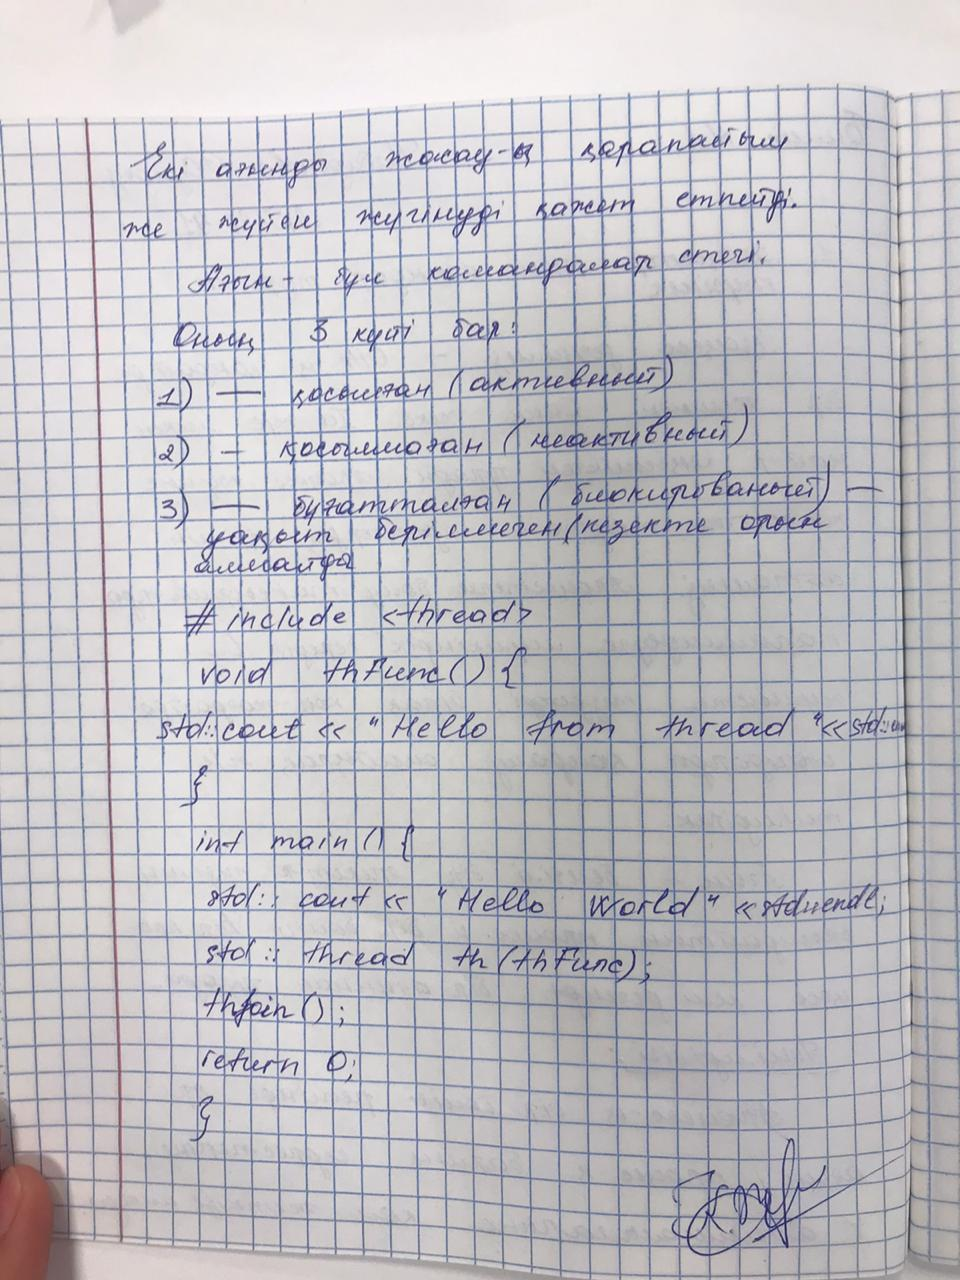 Екі ағынды жасау-ң қарапайтым
же жүйеы жүгінуді қажет етпейді.
Ағын - бұл командалар стегі.
Оның 3 күйі бар:
1) — қосылған (активный)
2) — қосылмаған (неактивный)
3) — бұғатталған (блокированый) —
уақыт берілмеген (кезекте орын
алмағанда
# include <thread>
void thFunc() {
std::cout << "Hello from thread" <<std::
}
int main() {
std:: cout << "Hello World" <<std::endl;
std:: thread th(thFunc);
thjoin();
return 0;
}